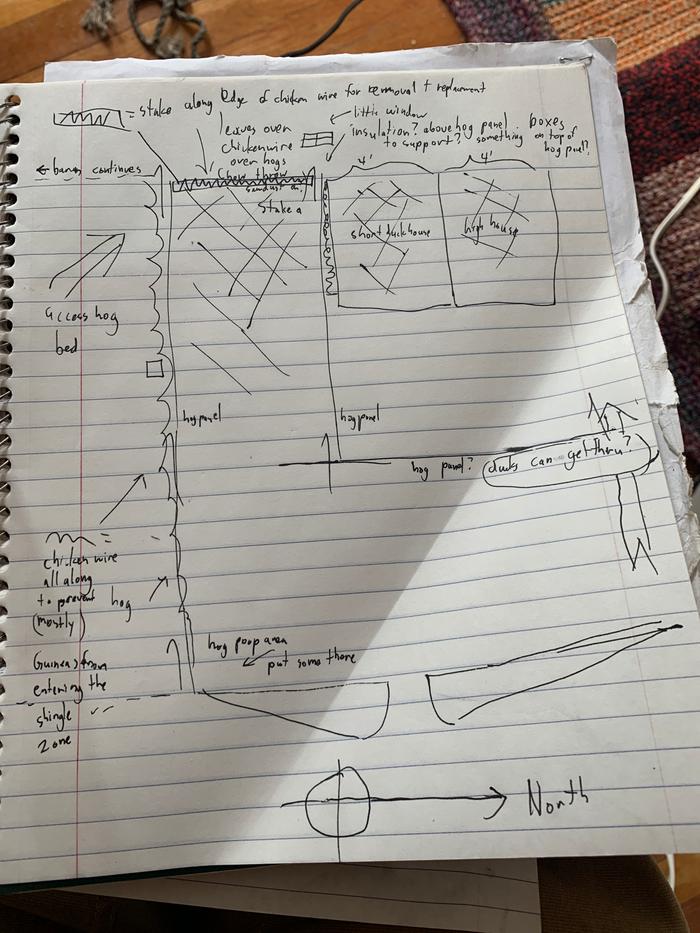 = stake along edge of chicken wire for removal + replacement
leaves over
chickenwire
over hogs
little window
insulation? above hog panel.
to support? something
boxes
on top of
hog panel?
← barn continues
4'
4'
stake a
short duckhouse
high house
access hog
bed
hog panel
hog panel
hog panel?
ducks can get there?
=
chicken wire
all along
to prevent hog
(mostly)
Guineas from
entering the
shingle
zone
hog poop area
put some there
North